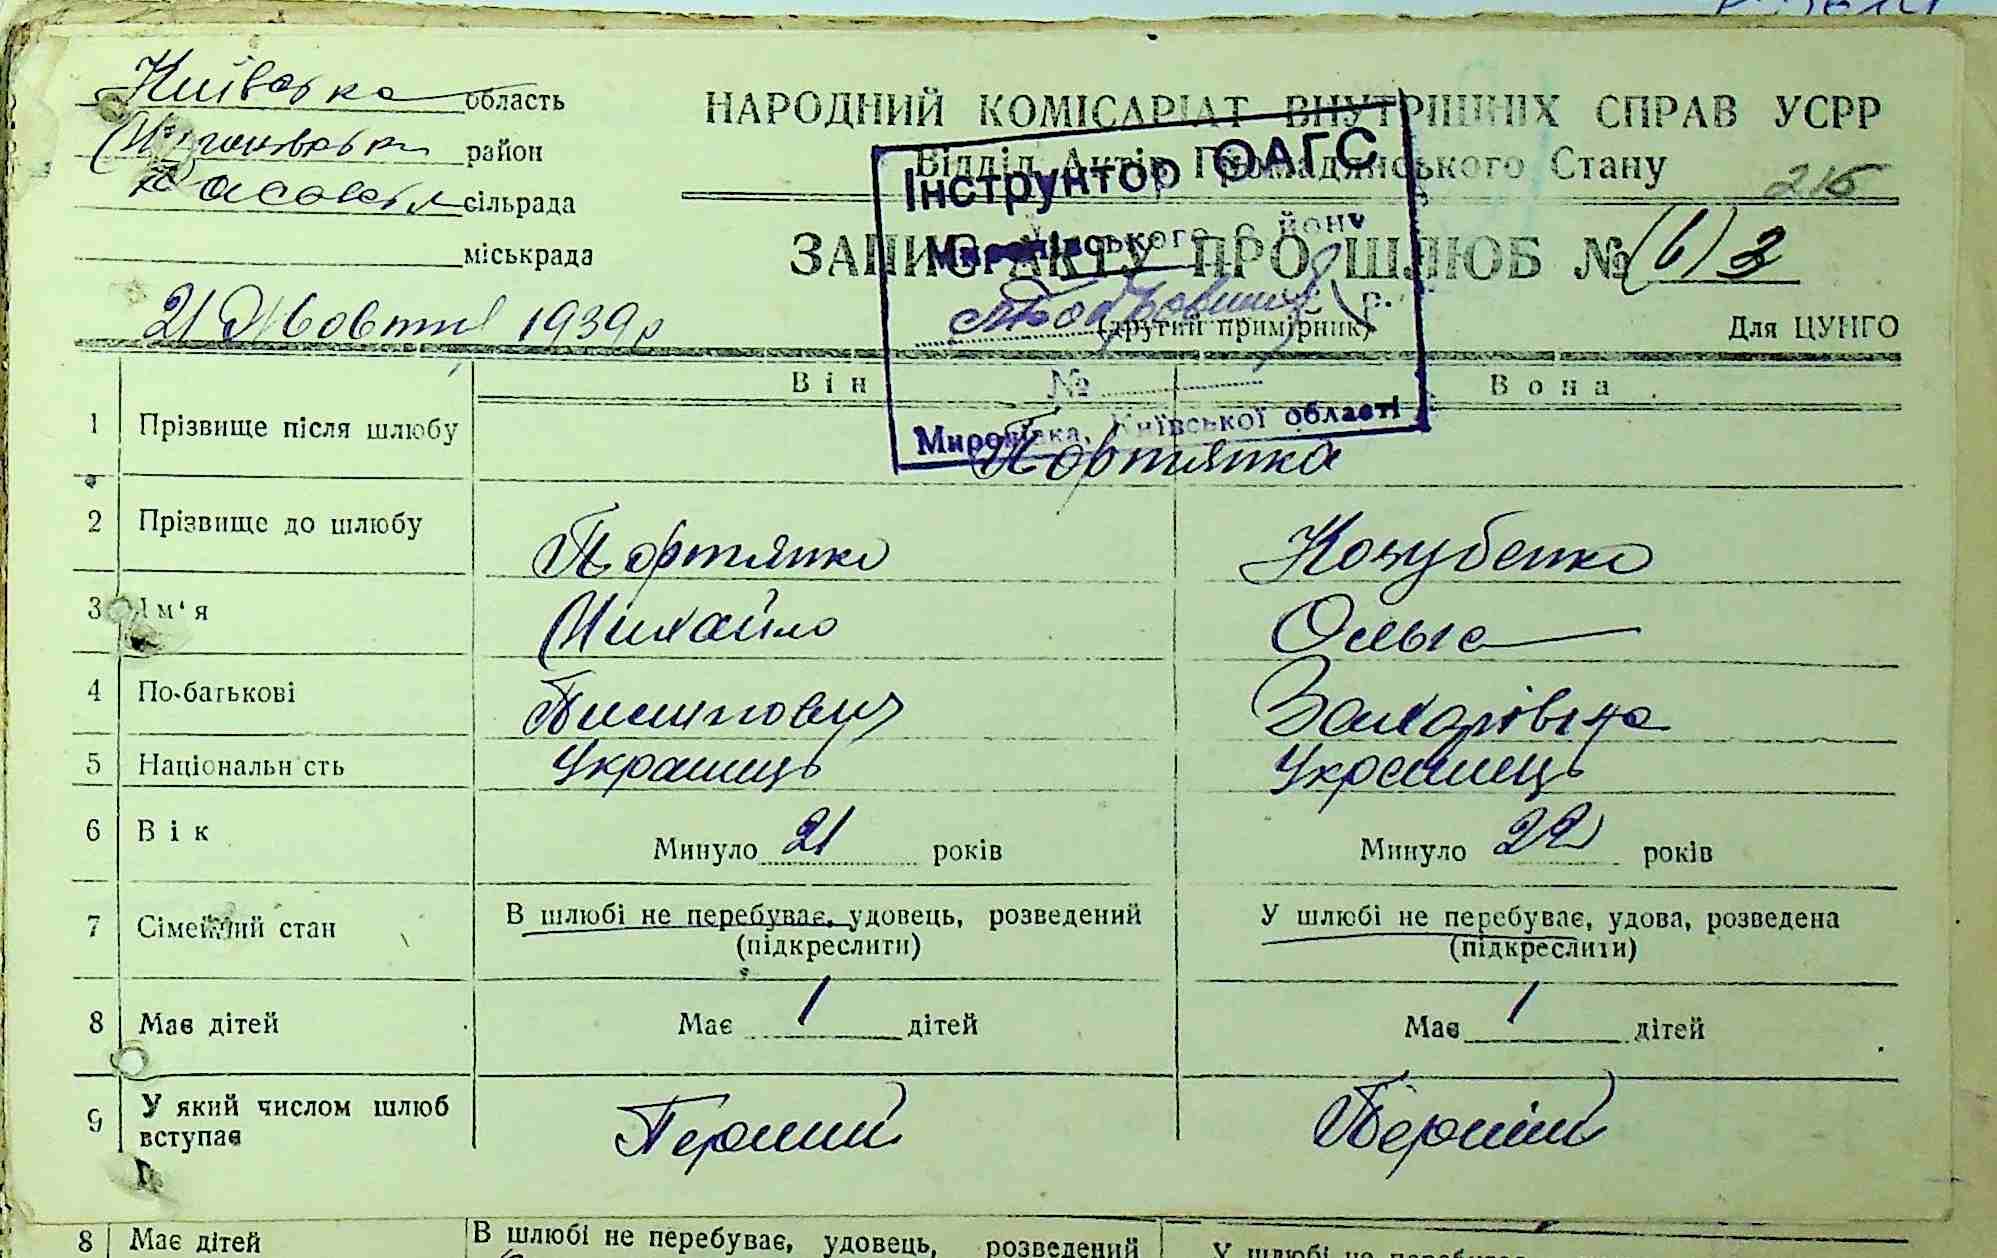 Київська область
район
сільрада
міськрада
21 Жовтня 1939 р
НАРОДНИЙ КОМІСАРІАТ ВНУТРІШНІХ СПРАВ УСРР
Відділ Актів Громадянського Стану
216
ЗАПИС АКТУ ПРО ШЛЮБ № (6) 3
(другий примірник)
Для ЦУНГО
Інструктор ОАГС
Миронівського району
р.
№
Миронівка, Київської області
Він Вона
1 Прізвище після шлюбу Портянка
2 Прізвище до шлюбу Портянко Козубенко
3 Ім'я Михайло Ольга
4 По-батькові Пилипович Захарівна
5 Національн сть Українець Українець
6 Вік Минуло 21 років Минуло 22 років
7 Сімейний стан В шлюбі не перебуває, удовець, розведений У шлюбі не перебуває, удова, розведена
(підкреслити) (підкреслити)
8 Має дітей Має 1 дітей Має 1 дітей
9 У який числом шлюб вступає Перший Перший
8 Має дітей В шлюбі не перебуває, удовець, розведений У шлюбі не перебуває